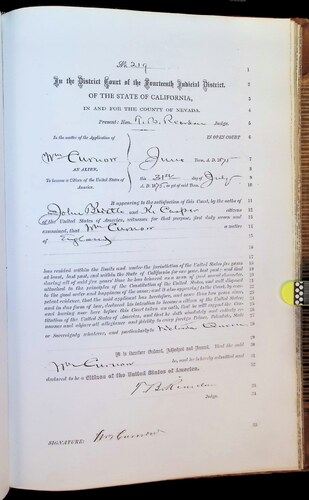 No. 219
In the District Court of the Fourteenth Judicial District,
OF THE STATE OF CALIFORNIA,
IN AND FOR THE COUNTY OF NEVADA.
Present: Hon. T. B. Reardon Judge.
In the matter of the Application of
IN OPEN COURT
Wm Curnow
June Term, A. D. 1875
AN ALIEN,
this 31st day of July
To become a Citizen of the United States of America.
A. D. 1875, as yet of said Term.
It appearing to the satisfaction of this Court, by the oaths of
John Bidtle and K. Casper citizens
of the United States of America, witnesses for that purpose, first duly sworn and
examined, that Wm Curnow a native
of England
has resided within the limits and under the jurisdiction of the United States for five years
at least, last past, and within the State of California for one year last past; and that
during all of said five years' time he has behaved as a man of good moral character,
attached to the principles of the Constitution of the United States, and well disposed
to the good order and happiness of the same; and it also appearing to the Court, by competent
evidence, that the said applicant has heretofore, and more than two years since,
and in due form of law, declared his intention to become a citizen of the United States,
and having now here before this Court taken an oath, that he will support the Constitution
of the United States of America, and that he doth absolutely and entirely renounce
and abjure all allegiance and fidelity to every foreign Prince, Potentate, State
or Sovereignty whatever, and particularly to Victoria Queen
It is therefore Ordered, Adjudged and Decreed, That the said
Wm Curnow be, and he is hereby admitted and
declared to be a Citizen of the United States of America.
T. B. Reardon
Judge.
SIGNATURE: Wm Curnow